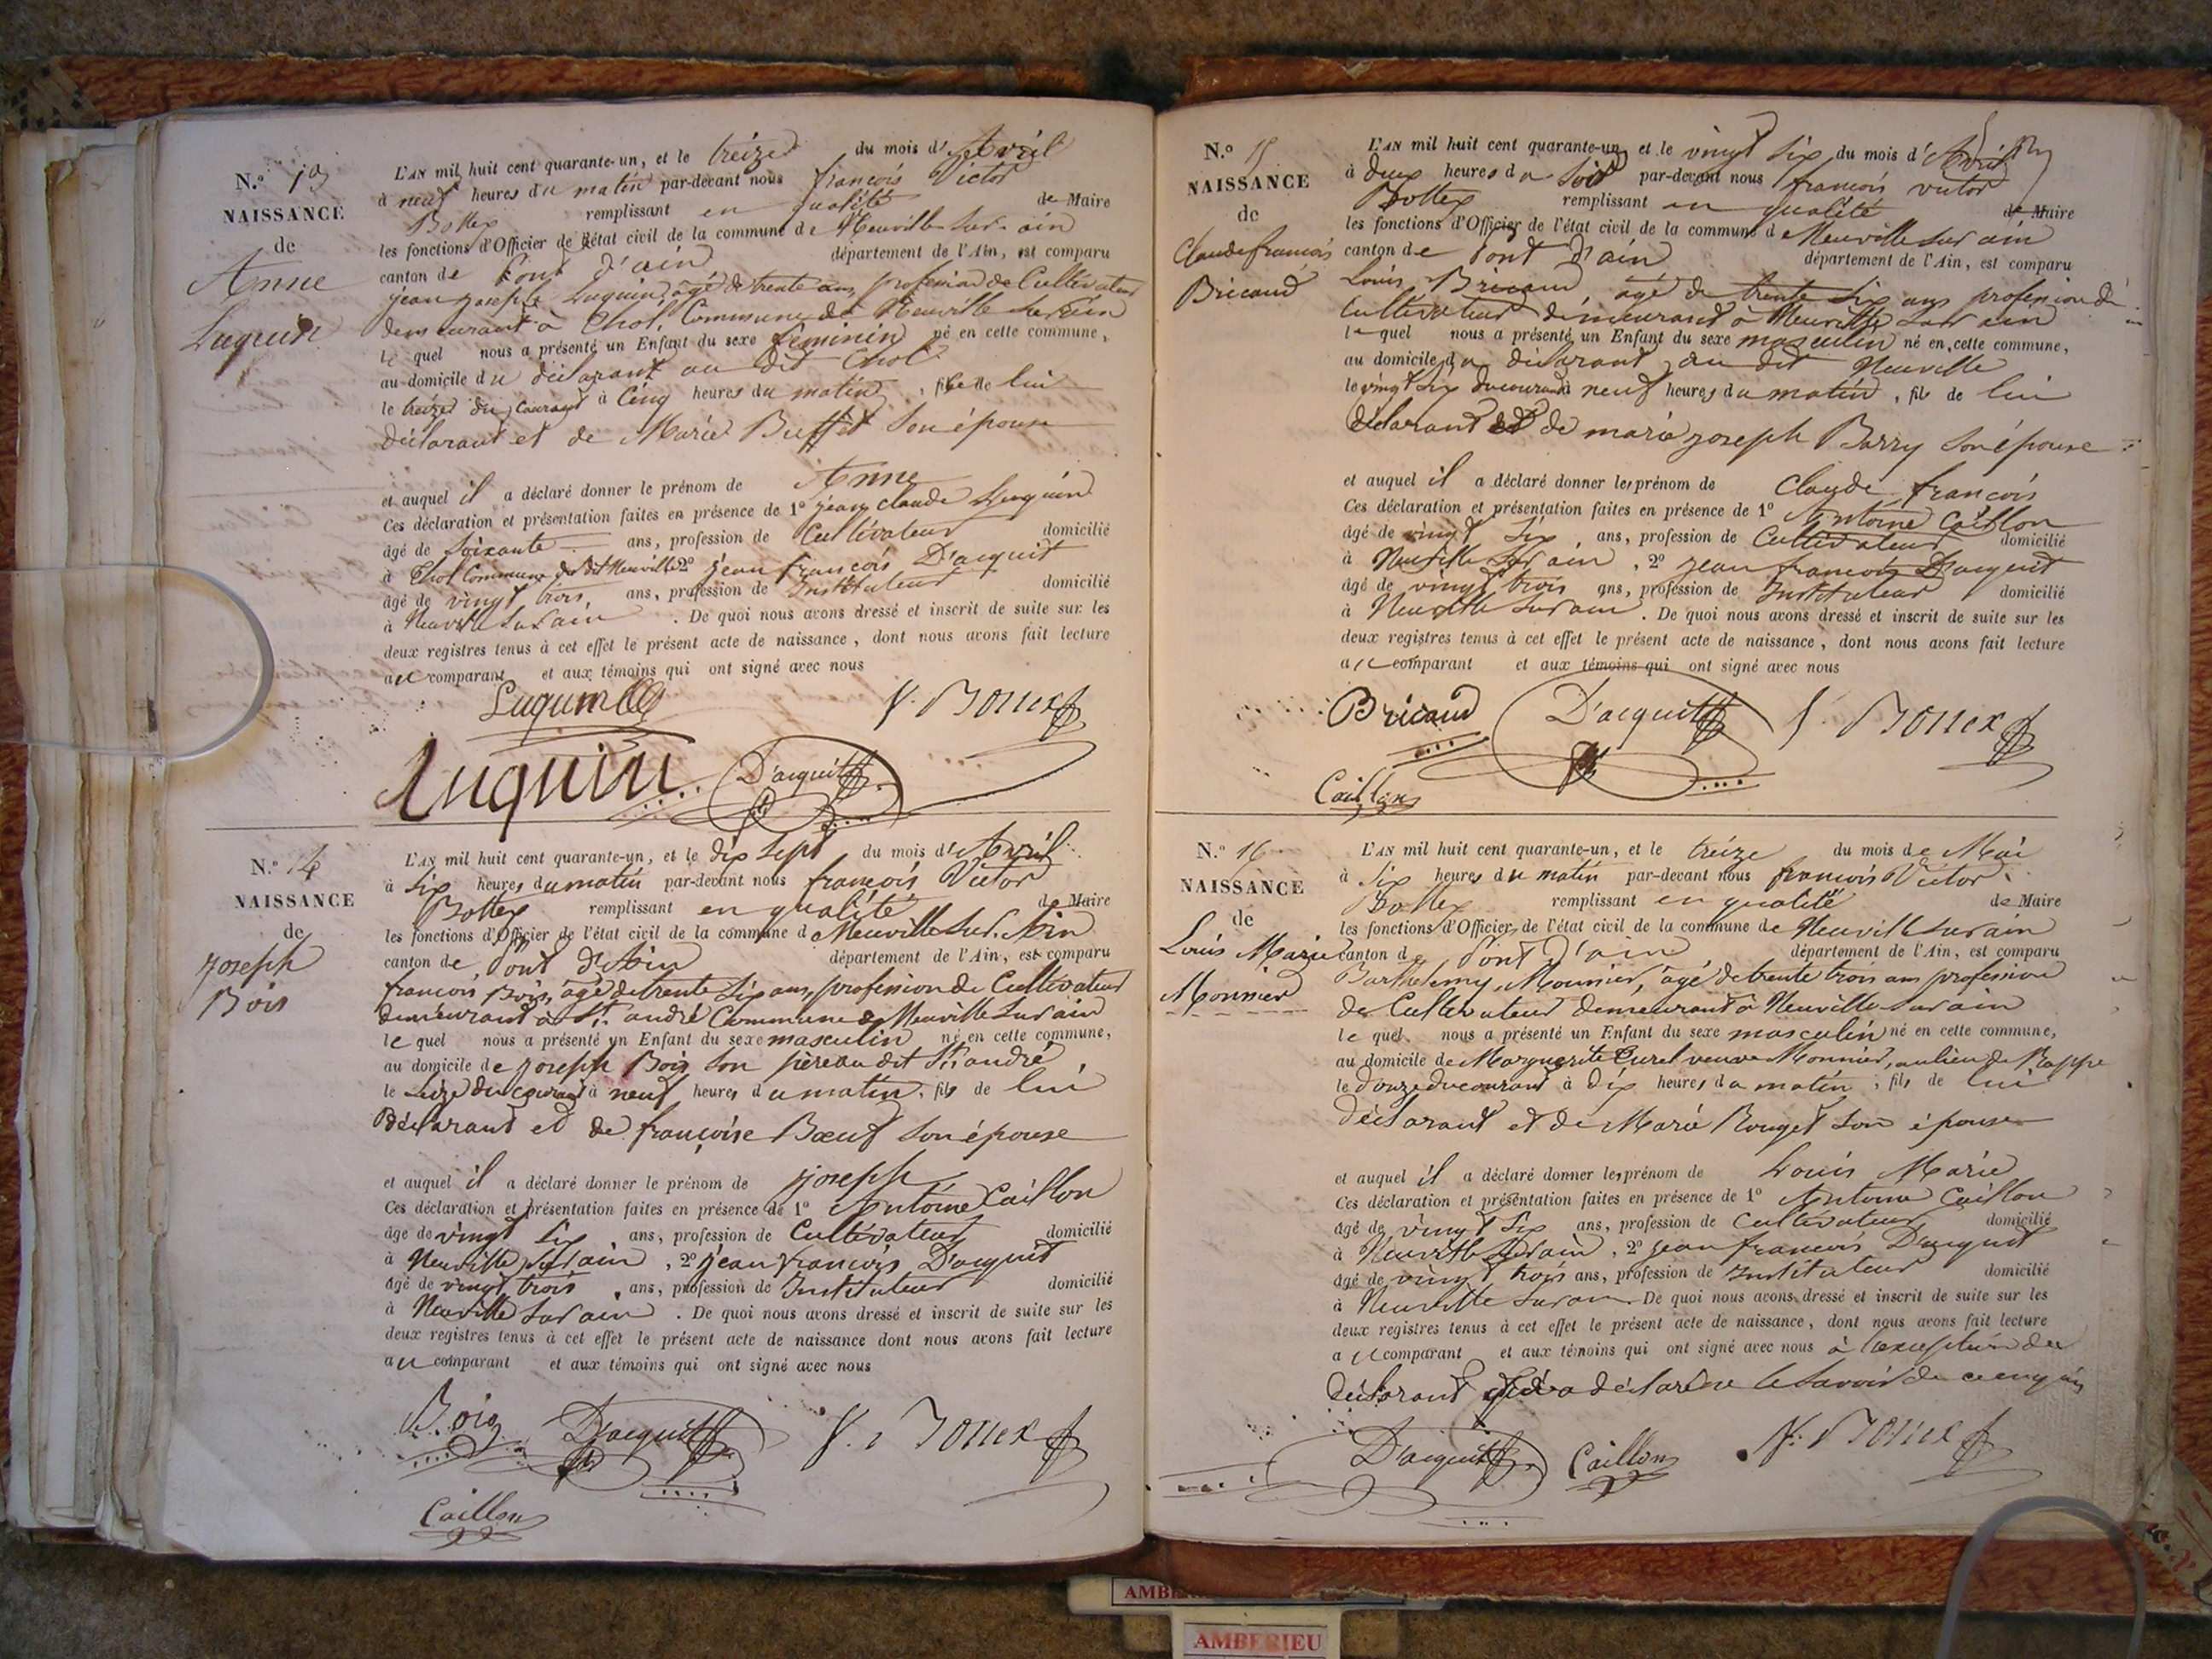 N.º 13
NAISSANCE
de
Anne
Luquin
L'AN mil huit cent quarante-un, et le treize du mois d'Avril
à neuf heures du matin par-devant nous françois Victor
Bottex remplissant en qualité de Maire
les fonctions d'Officier de l'état civil de la commune de Neuville sur ain
canton de Pont d'ain département de l'Ain, est comparu
jean joseph Luquin, agé de trente ans, profession de Cultivateur
demeurant à Thol, Commune de Neuville sur ain
le quel nous a présenté un Enfant du sexe feminin né en cette commune,
au domicile du déclarant au dit Thol
le treize du courant à Cinq heures du matin, fille de lui
déclarant et de Marie Buffet son épouse
et auquel il a déclaré donner le prénom de Anne
Ces déclaration et présentation faites en présence de 1º jean claude Luquin
âgé de soixante ans, profession de Cultivateur domicilié
à Thol Commune du dit Neuville 2º jean françois D'acquit
âgé de vingt trois ans, profession de Instituteur domicilié
à Neuville sur ain. De quoi nous avons dressé et inscrit de suite sur les
deux registres tenus à cet effet le présent acte de naissance, dont nous avons fait lecture
au comparant et aux témoins qui ont signé avec nous
Luquin
V. Bottex
Luquin D'acquit
N.º 14
NAISSANCE
de
joseph
Bois
L'AN mil huit cent quarante-un, et le dix sept du mois d'Avril
à six heures du matin par-devant nous françois Victor
Bottex remplissant en qualité de Maire
les fonctions d'Officier de l'état civil de la commune de Neuville sur Ain
canton de Pont d'Ain département de l'Ain, est comparu
françois Bois, agé de trente six ans, profession de Cultivateur
demeurant à St. andré Commune de Neuville sur ain
le quel nous a présenté un Enfant du sexe masculin né en cette commune,
au domicile de joseph Bois son père au dit St. andré
le seize du courant à neuf heures du matin, fils de lui
déclarant et de françoise Bœuf son épouse
et auquel il a déclaré donner le prénom de joseph
Ces déclaration et présentation faites en présence de 1º Antoine Caillon
âgé de vingt six ans, profession de Cultivateur domicilié
à Neuville sur ain, 2º jean françois D'acquit
âgé de vingt trois ans, profession de Instituteur domicilié
à Neuville sur ain. De quoi nous avons dressé et inscrit de suite sur les
deux registres tenus à cet effet le présent acte de naissance dont nous avons fait lecture
au comparant et aux témoins qui ont signé avec nous
Bois D'acquit V. Bottex
Caillon
N.º 15
NAISSANCE
de
Claude françois
Bricaud
L'AN mil huit cent quarante-un, et le vingt six du mois d'Avril
à deux heures du soir par-devant nous françois victor
Bottex remplissant en qualité de Maire
les fonctions d'Officier de l'état civil de la commune de Neuville sur ain
canton de Pont d'ain département de l'Ain, est comparu
Louis Bricaud agé de trente six ans profession de
Cultivateur demeurant à Neuville sur ain
le quel nous a présenté un Enfant du sexe masculin né en cette commune,
au domicile du déclarant au dit Neuville
le vingt six du courant à neuf heures du matin, fils de lui
déclarant et de marie joseph Barry son épouse
et auquel il a déclaré donner les prénom de Claude françois
Ces déclaration et présentation faites en présence de 1º Antoine Caillon
âgé de vingt six ans, profession de Cultivateur domicilié
à Neuville sur ain, 2º jean françois D'acquit
âgé de vingt trois ans, profession de Instituteur domicilié
à Neuville sur ain. De quoi nous avons dressé et inscrit de suite sur les
deux registres tenus à cet effet le présent acte de naissance, dont nous avons fait lecture
au comparant et aux témoins qui ont signé avec nous
Bricaud D'acquit V. Bottex
Caillon
N.º 16
NAISSANCE
de
Louis Marie
Monnier
L'AN mil huit cent quarante-un, et le treize du mois de Mai
à six heures du matin par-devant nous françois Victor
Bottex remplissant en qualité de Maire
les fonctions d'Officier de l'état civil de la commune de Neuville sur ain
canton de Pont d'ain département de l'Ain, est comparu
Barthelemy Monnier, agé de trente trois ans profession
de Cultivateur demeurant à Neuville sur ain
le quel nous a présenté un Enfant du sexe masculin né en cette commune,
au domicile de Marguerite Curel veuve Monnier, au lieu de Rappe
le Douze du courant à dix heures du matin, fils de lui
déclarant et de Marie Rouget son épouse
et auquel il a déclaré donner les prénom de Louis Marie
Ces déclaration et présentation faites en présence de 1º Antoine Caillon
âgé de vingt six ans, profession de Cultivateur domicilié
à Neuville sur ain, 2º jean françois D'acquit
âgé de vingt trois ans, profession de Instituteur domicilié
à Neuville sur ain. De quoi nous avons dressé et inscrit de suite sur les
deux registres tenus à cet effet le présent acte de naissance, dont nous avons fait lecture
au comparant et aux témoins qui ont signé avec nous à l'exception du
déclarant qui a déclaré ne le savoir de ce enquis
D'acquit Caillon V. Bottex
AMBERIEU